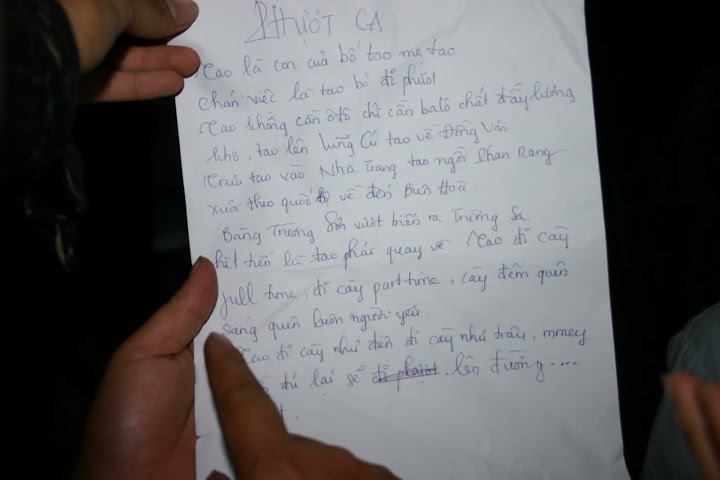 PHƯỢT CA.
Tao là con của bố tao mẹ tao
Chán việc là tao bỏ đi phượt
Tao không cần ôtô chỉ cần balô chất đầy lương
khô, tao lên Lũng Cú tao về Đồng Văn
Trưa tao vào Nha Trang tao ngồi Phan Rang
xuôi theo quốc lộ về đến Biên Hoà.
Băng Trường Sơn vượt biển ra Trường Sa.
hết tiền là tao phải quay về. Tao đi cày
full time, đi cày part time, cày đêm quên
sáng quên luôn người yêu.
Tao đi cày như điên đi cày như trâu, money
đủ lại sẽ lên đường....